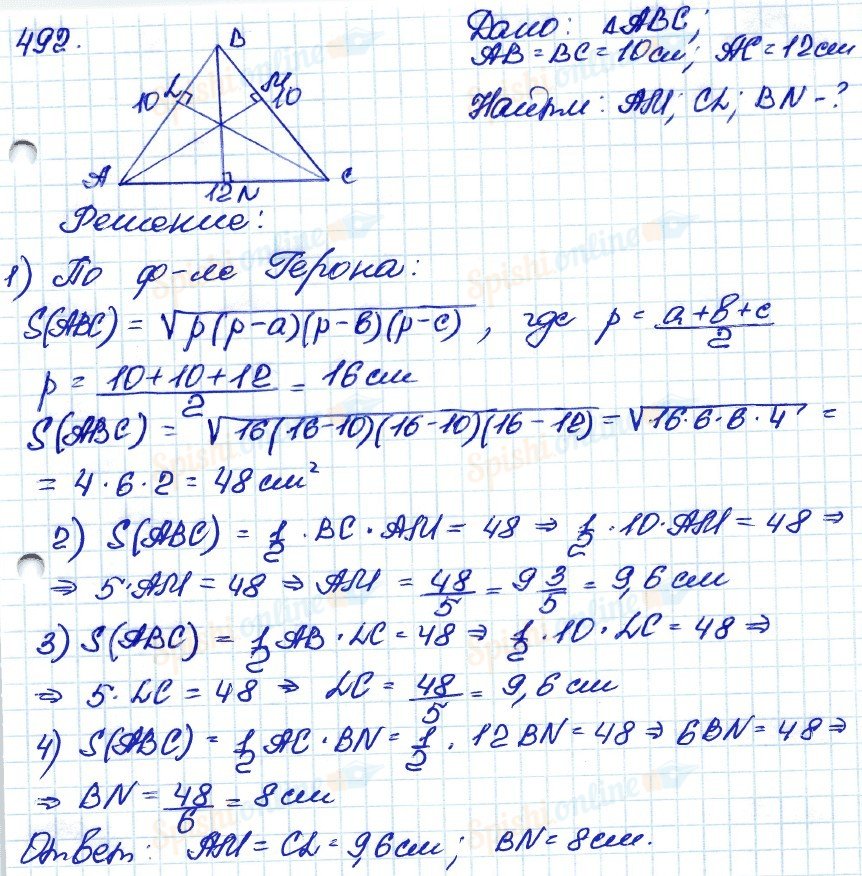 492.
Дано: ΔABC;
AB = BC = 10см; AC = 12см
Найти: AM; CL; BN - ?
B
L
M
10
10
A
C
12 N
Решение:
1) По ф-ле Герона:
S(ABC) = √p(p-a)(p-b)(p-c), где p = (a+b+c)/2
p = (10+10+12)/2 = 16 см
S(ABC) = √16(16-10)(16-10)(16-12) = √16·6·6·4 =
= 4·6·2 = 48 см²
2) S(ABC) = 1/2 · BC · AM = 48 ⇒ 1/2 · 10 · AM = 48 ⇒
⇒ 5·AM = 48 ⇒ AM = 48/5 = 9 3/5 = 9,6 см
3) S(ABC) = 1/2 AB · LC = 48 ⇒ 1/2 · 10 · LC = 48 ⇒
⇒ 5·LC = 48 ⇒ LC = 48/5 = 9,6 см
4) S(ABC) = 1/2 AC · BN = 1/2 · 12BN = 48 ⇒ 6BN = 48 ⇒
⇒ BN = 48/6 = 8 см
Ответ: AM = CL = 9,6 см; BN = 8 см.
Spishi.online